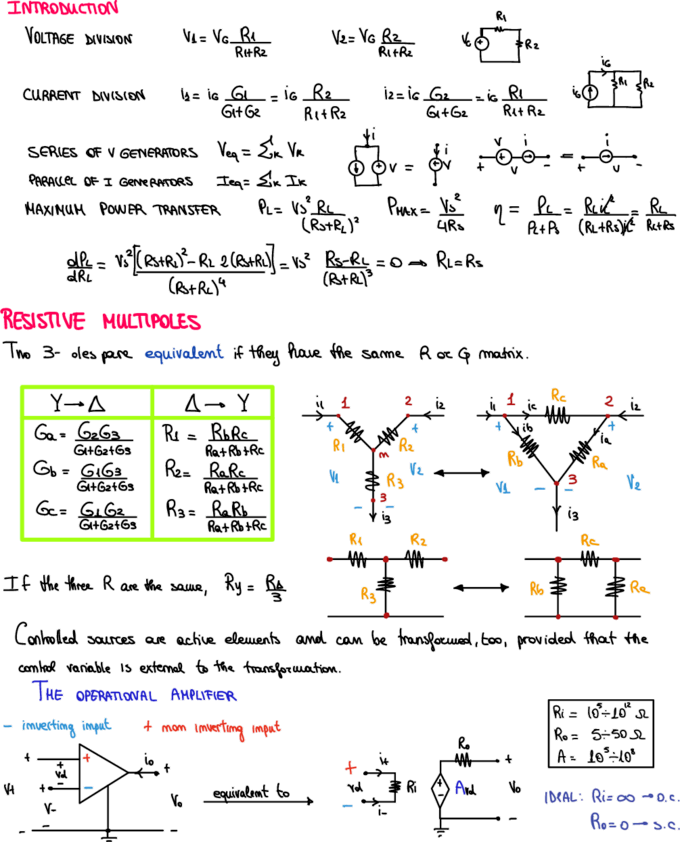 INTRODUCTION
VOLTAGE DIVISION V1 = VG R1/(R1+R2) V2 = VG R2/(R1+R2)
R1
VG + R2
CURRENT DIVISION i1 = iG G1/(G1+G2) = iG R2/(R1+R2) i2 = iG G2/(G1+G2) = iG R1/(R1+R2)
iG
iG R1 R2
SERIES OF V GENERATORS Veq = Σk Vk
PARALLEL OF I GENERATORS Ieq = Σk Ik
i V = i V
V i + V - = i + V -
MAXIMUM POWER TRANSFER PL = VS² RL/(RS+RL)² PMAX = VS²/4RS η = PL/(PL+PS) = RL iL²/((RL+RS)iL²) = RL/(RL+RS)
dPL/dRL = VS² [(RS+RL)² - RL 2(RS+RL)]/(RS+RL)⁴ = VS² (RS-RL)/(RS+RL)³ = 0 → RL=RS
RESISTIVE MULTIPOLES
Two 3- oles pare equivalent if they have the same R or G matrix.
Y→Δ Δ→Y
Ga = G2G3/(G1+G2+G3) R1 = RbRc/(Ra+Rb+Rc)
Gb = G1G3/(G1+G2+G3) R2 = RaRc/(Ra+Rb+Rc)
Gc = G1G2/(G1+G2+G3) R3 = RaRb/(Ra+Rb+Rc)
i1 1 2 i2
+ R1 R2 +
m
V1 R3 V2
- 3 -
i3
Rc
i1 1 ic 2 i2
+ ib ia +
Rb Ra
V1 - 3 - V2
i3
R1 R2
R3
Rc
Rb Ra
If the three R are the same, RY = RΔ/3
Controlled sources are active elements and can be transformed, too, provided that the
control variable is external to the transformation.
THE OPERATIONAL AMPLIFIER
- inverting input + non inverting input
+ + io +
vd
V+ + - V-
Vo
- - -
equivalent to
i+ Ro
+ + +
vd Ri Avd Vo
- - i- -
Ri = 10⁵÷10¹² Ω
Ro = 5÷50 Ω
A = 10⁵÷10⁸
IDEAL: Ri=∞ → O.C.
Ro=0 → S.C.